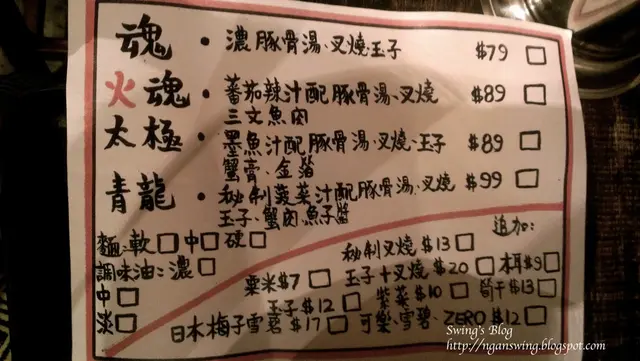 魂 • 濃豚骨湯、叉燒玉子 $79 □
火魂 • 蕃茄辣汁配豚骨湯、叉燒 $89 □
三文魚肉
太極 • 墨魚汁配豚骨湯、叉燒、玉子 $89 □
蟹膏、金箔
青龍 • 秘制菠菜汁配豚骨湯、叉燒 $99 □
玉子、蟹肉、魚子醬
麵:軟□中□硬□
調味油:濃□
中□
淡□
追加:
秘制叉燒 $13□
粟米$7□ 玉子+叉燒 $20□ 木耳$9□
玉子$12□ 紫菜$10□ 筍干$13□
日本梅子雪碧 $17□ 可樂、雪碧、ZERO $12□
Swing's Blog
http://nganswing.blogspot.com